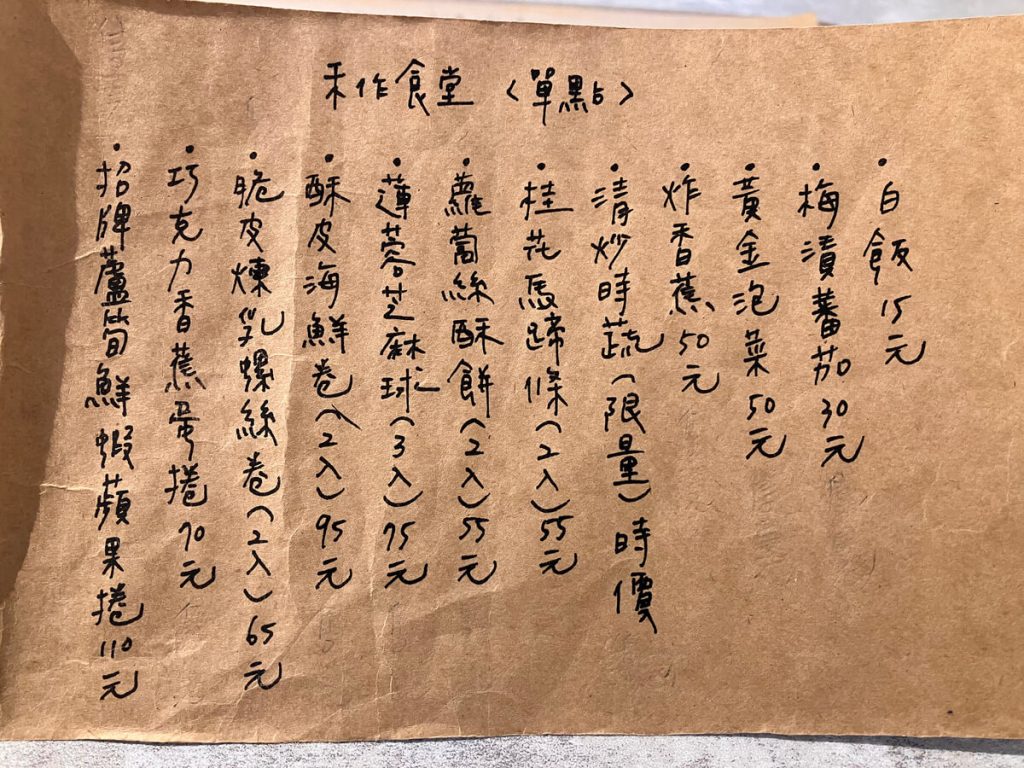 禾作食堂〈單點〉
•白飯15元
•梅漬蕃茄30元
•黃金泡菜50元
•炸香蕉50元
•清炒時蔬(限量)時價
•桂花馬蹄條(2入)55元
•蘿蔔絲酥餅(2入)55元
•蓮蓉芝麻球(3入)75元
•酥皮海鮮卷(2入)95元
•脆皮煉乳螺絲卷(2入)65元
•巧克力香蕉蛋捲70元
•招牌蘆筍鮮蝦蘋果捲110元